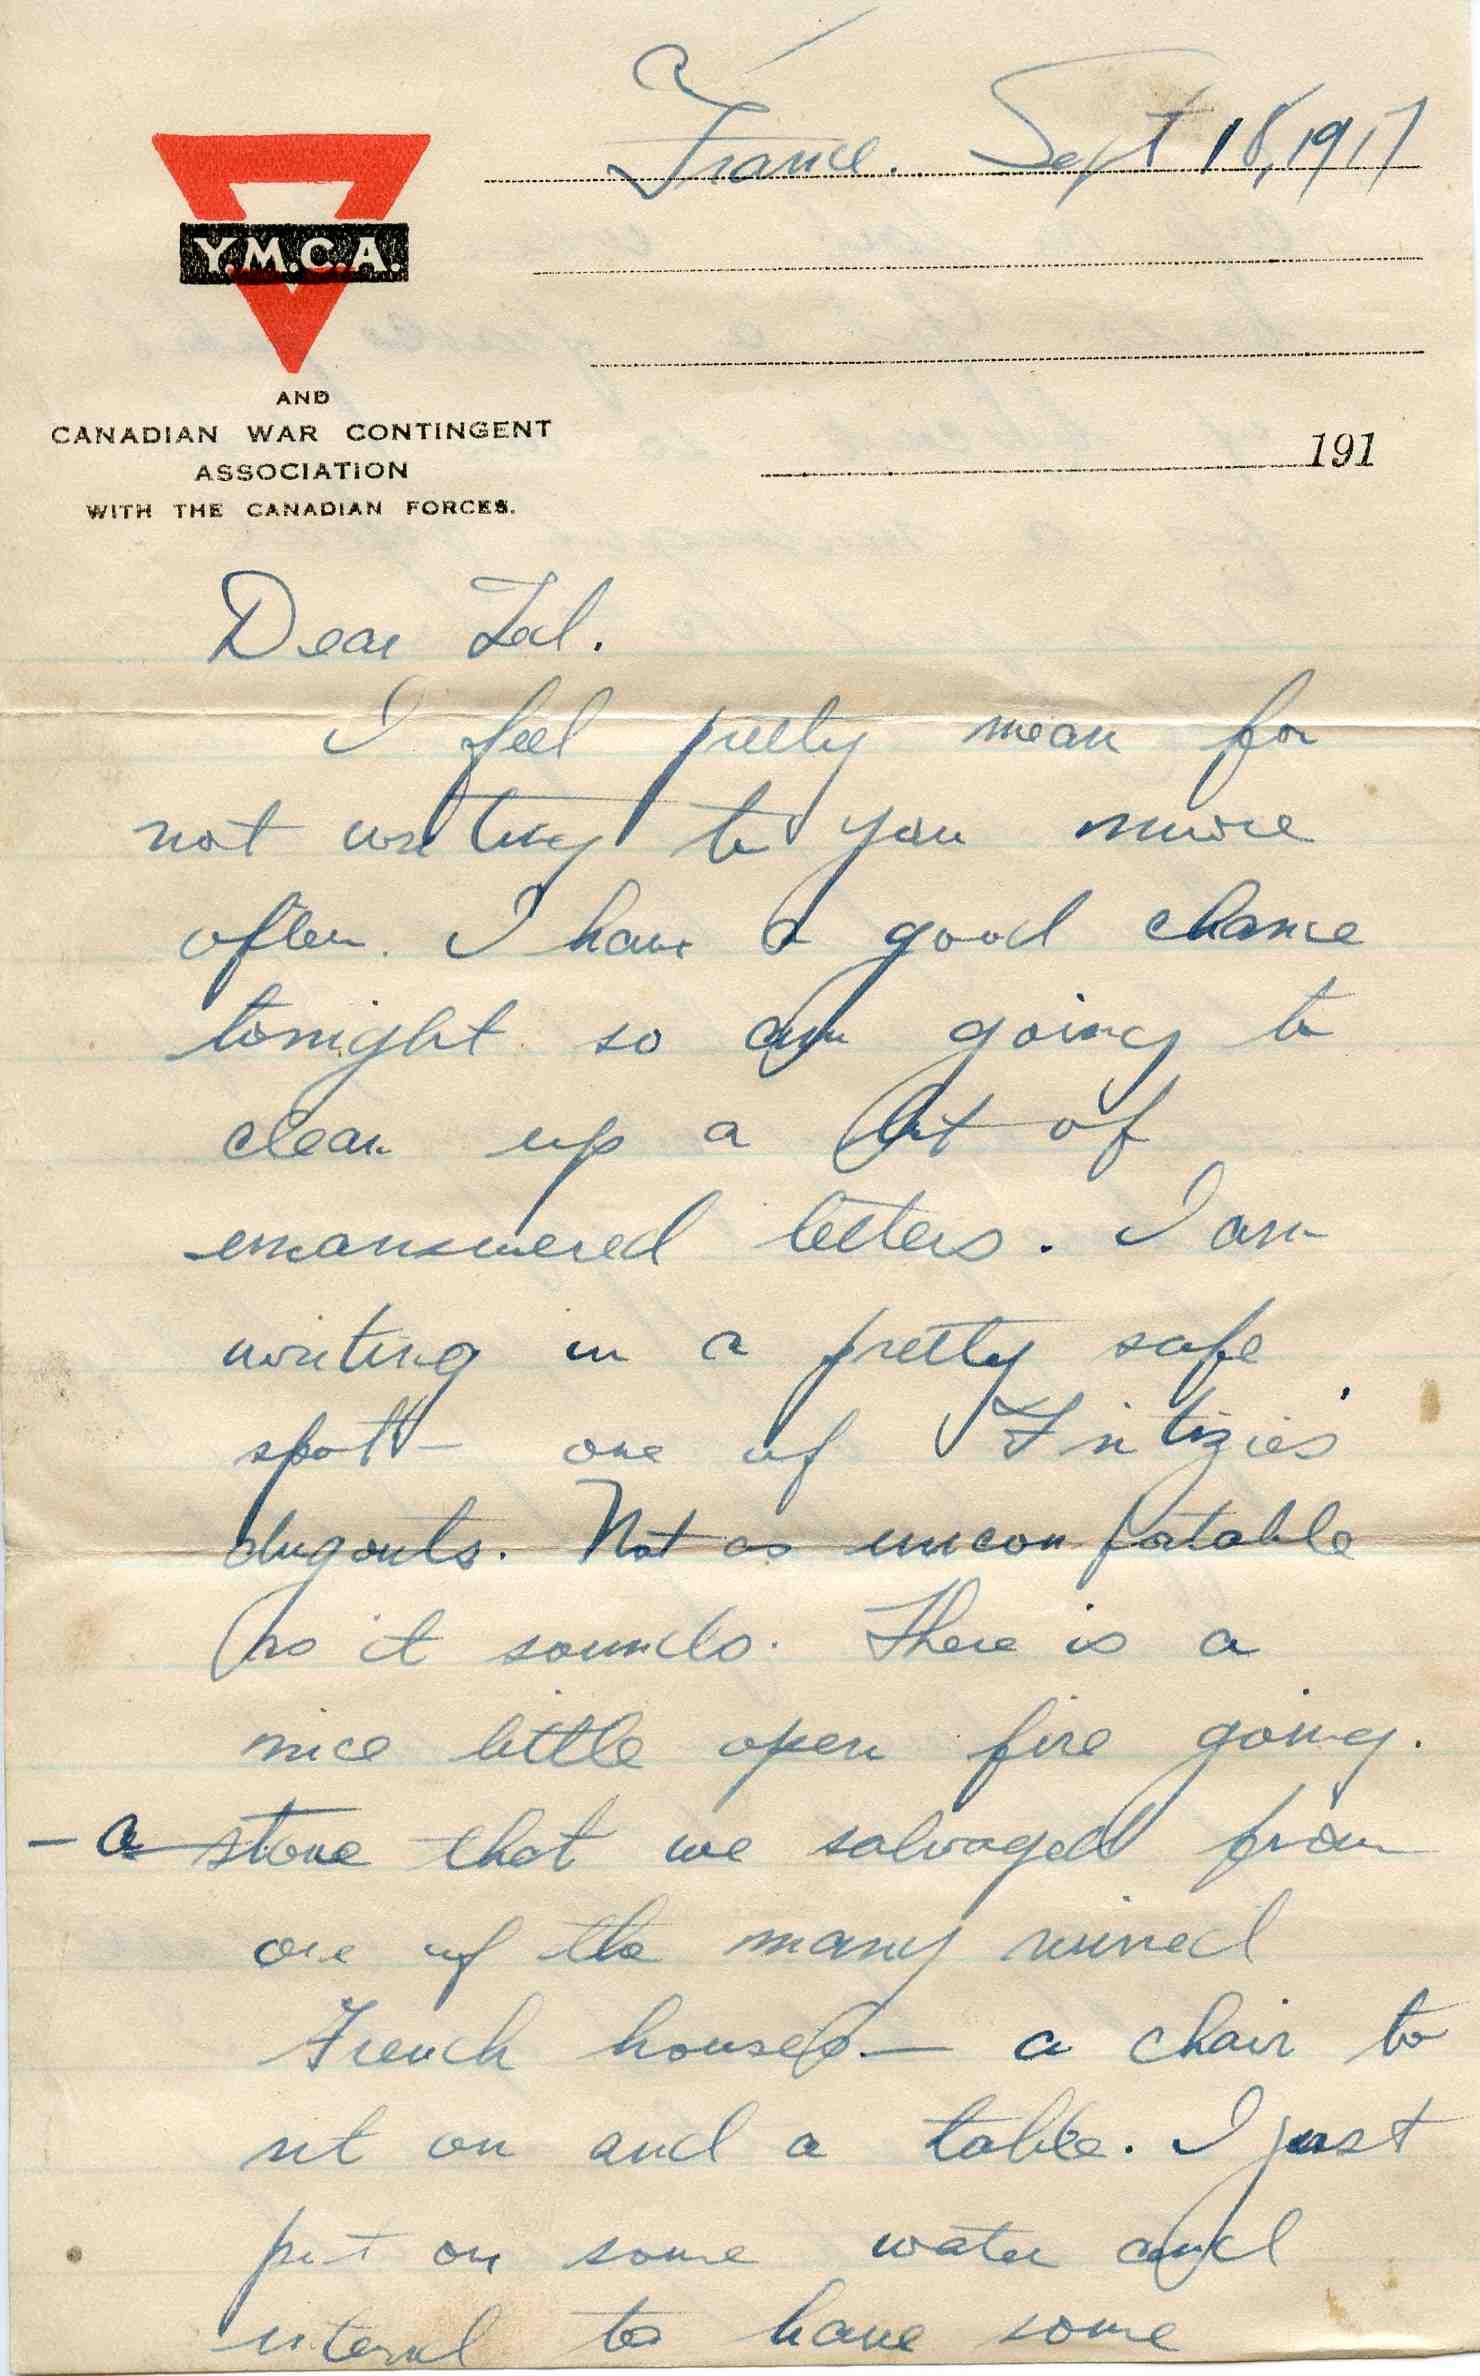 France. Sept 18, 1917
Y.M.C.A.
AND
CANADIAN WAR CONTINGENT
ASSOCIATION
WITH THE CANADIAN FORCES.
191
Dear Ted.
I feel pretty mean for
not writing to you more
often. I have a good chance
tonight so am going to
clean up a lot of
unanswered letters. I am
writing in a pretty safe
spot - one of Fritzies'
dugouts. Not as uncomfortable
as it sounds. There is a
nice little open fire going.
- a stove that we salvaged from
one of the many ruined
French houses - a chair to
sit on and a table. I just
put on some water and
intend to have some